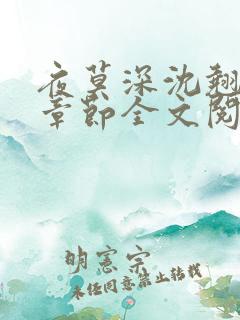 夜莫深沈翘
章节全文阅
明宪宗
未经同意禁止转载